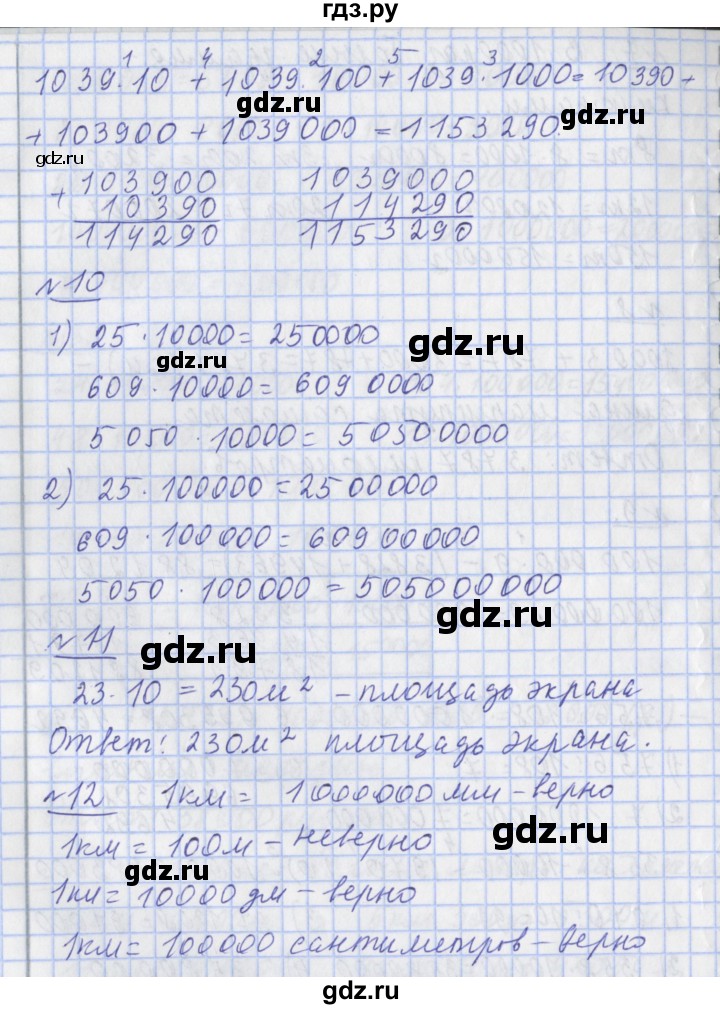 гдз.ру
1 4 2 5 3
1039·10 + 1039·100 + 1039·1000 = 10390 +
gdz.ru
gdz.ru
+ 103900 + 1039000 = 1153290.
gdz.ru
+ 103900 1039000
10390 114290
114290 1153290
gdz.ru
№10
1) 25·10000 = 250000
gdz.ru
gdz.ru
609·10000 = 6090000
5050·10000 = 50500000
2) 25·100000 = 2500000
gdz.ru
609·100000 = 60900000
5050·100000 = 505000000
gdz.ru
№11
gdz.ru
23·10 = 230м² – площадь экрана
Ответ: 230м² площадь экрана.
gdz.ru
№12 1км = 1000000мм – верно
gdz.ru
1км = 100м – неверно
gdz.ru
1км = 10000дм – верно
1км = 100000 сантиметров – верно
gdz.ru